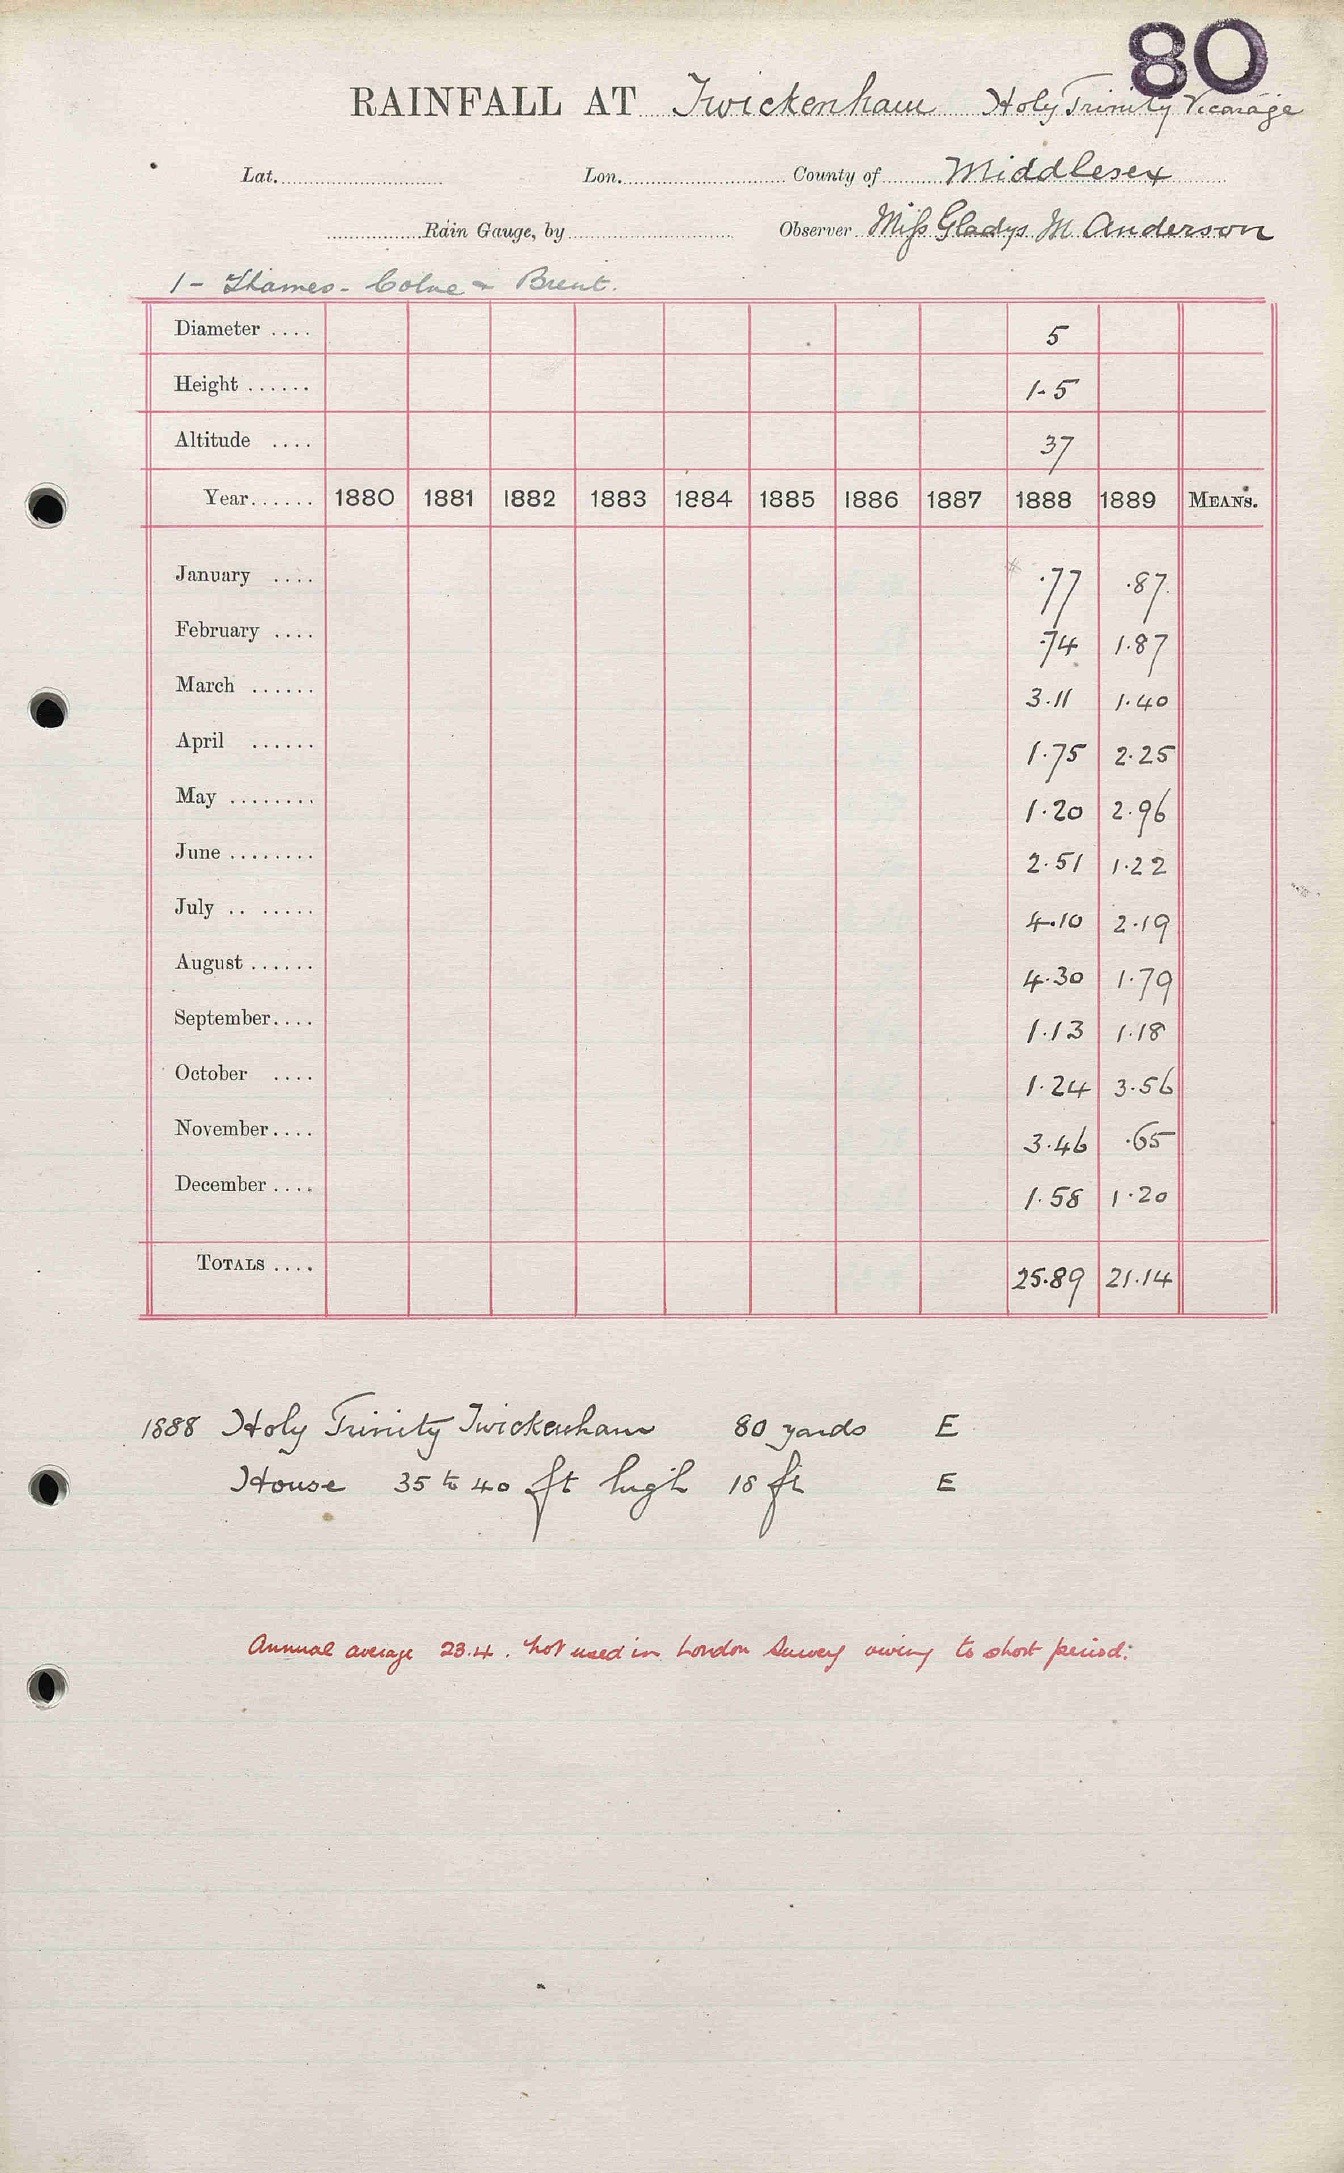 80
RAINFALL AT Twickenham Holy Trinity Vicarage
Lat. Lon. County of Middlesex
Rain Gauge, by Observer Miss Gladys M Anderson
1 - Thames - Colne & Brent.
Diameter .... 5
Height ...... 1-5
Altitude .... 37
Year...... 1880 1881 1882 1883 1884 1885 1886 1887 1888 1889 MEANS.
January .... .77 .87
February .... .74 1.87
March ...... 3.11 1.40
April ...... 1.75 2.25
May ........ 1.20 2.96
June ........ 2.51 1.22
July .. ..... 4.10 2.19
August ...... 4.30 1.79
September.... 1.13 1.18
October .... 1.24 3.56
November.... 3.46 .65
December .... 1.58 1.20
TOTALS .... 25.89 21.14
1888 Holy Trinity Twickenham 80 yards E
House 35 to 40 ft high 18 ft E
Annual average 23.4. Not used in London Survey owing to short period.